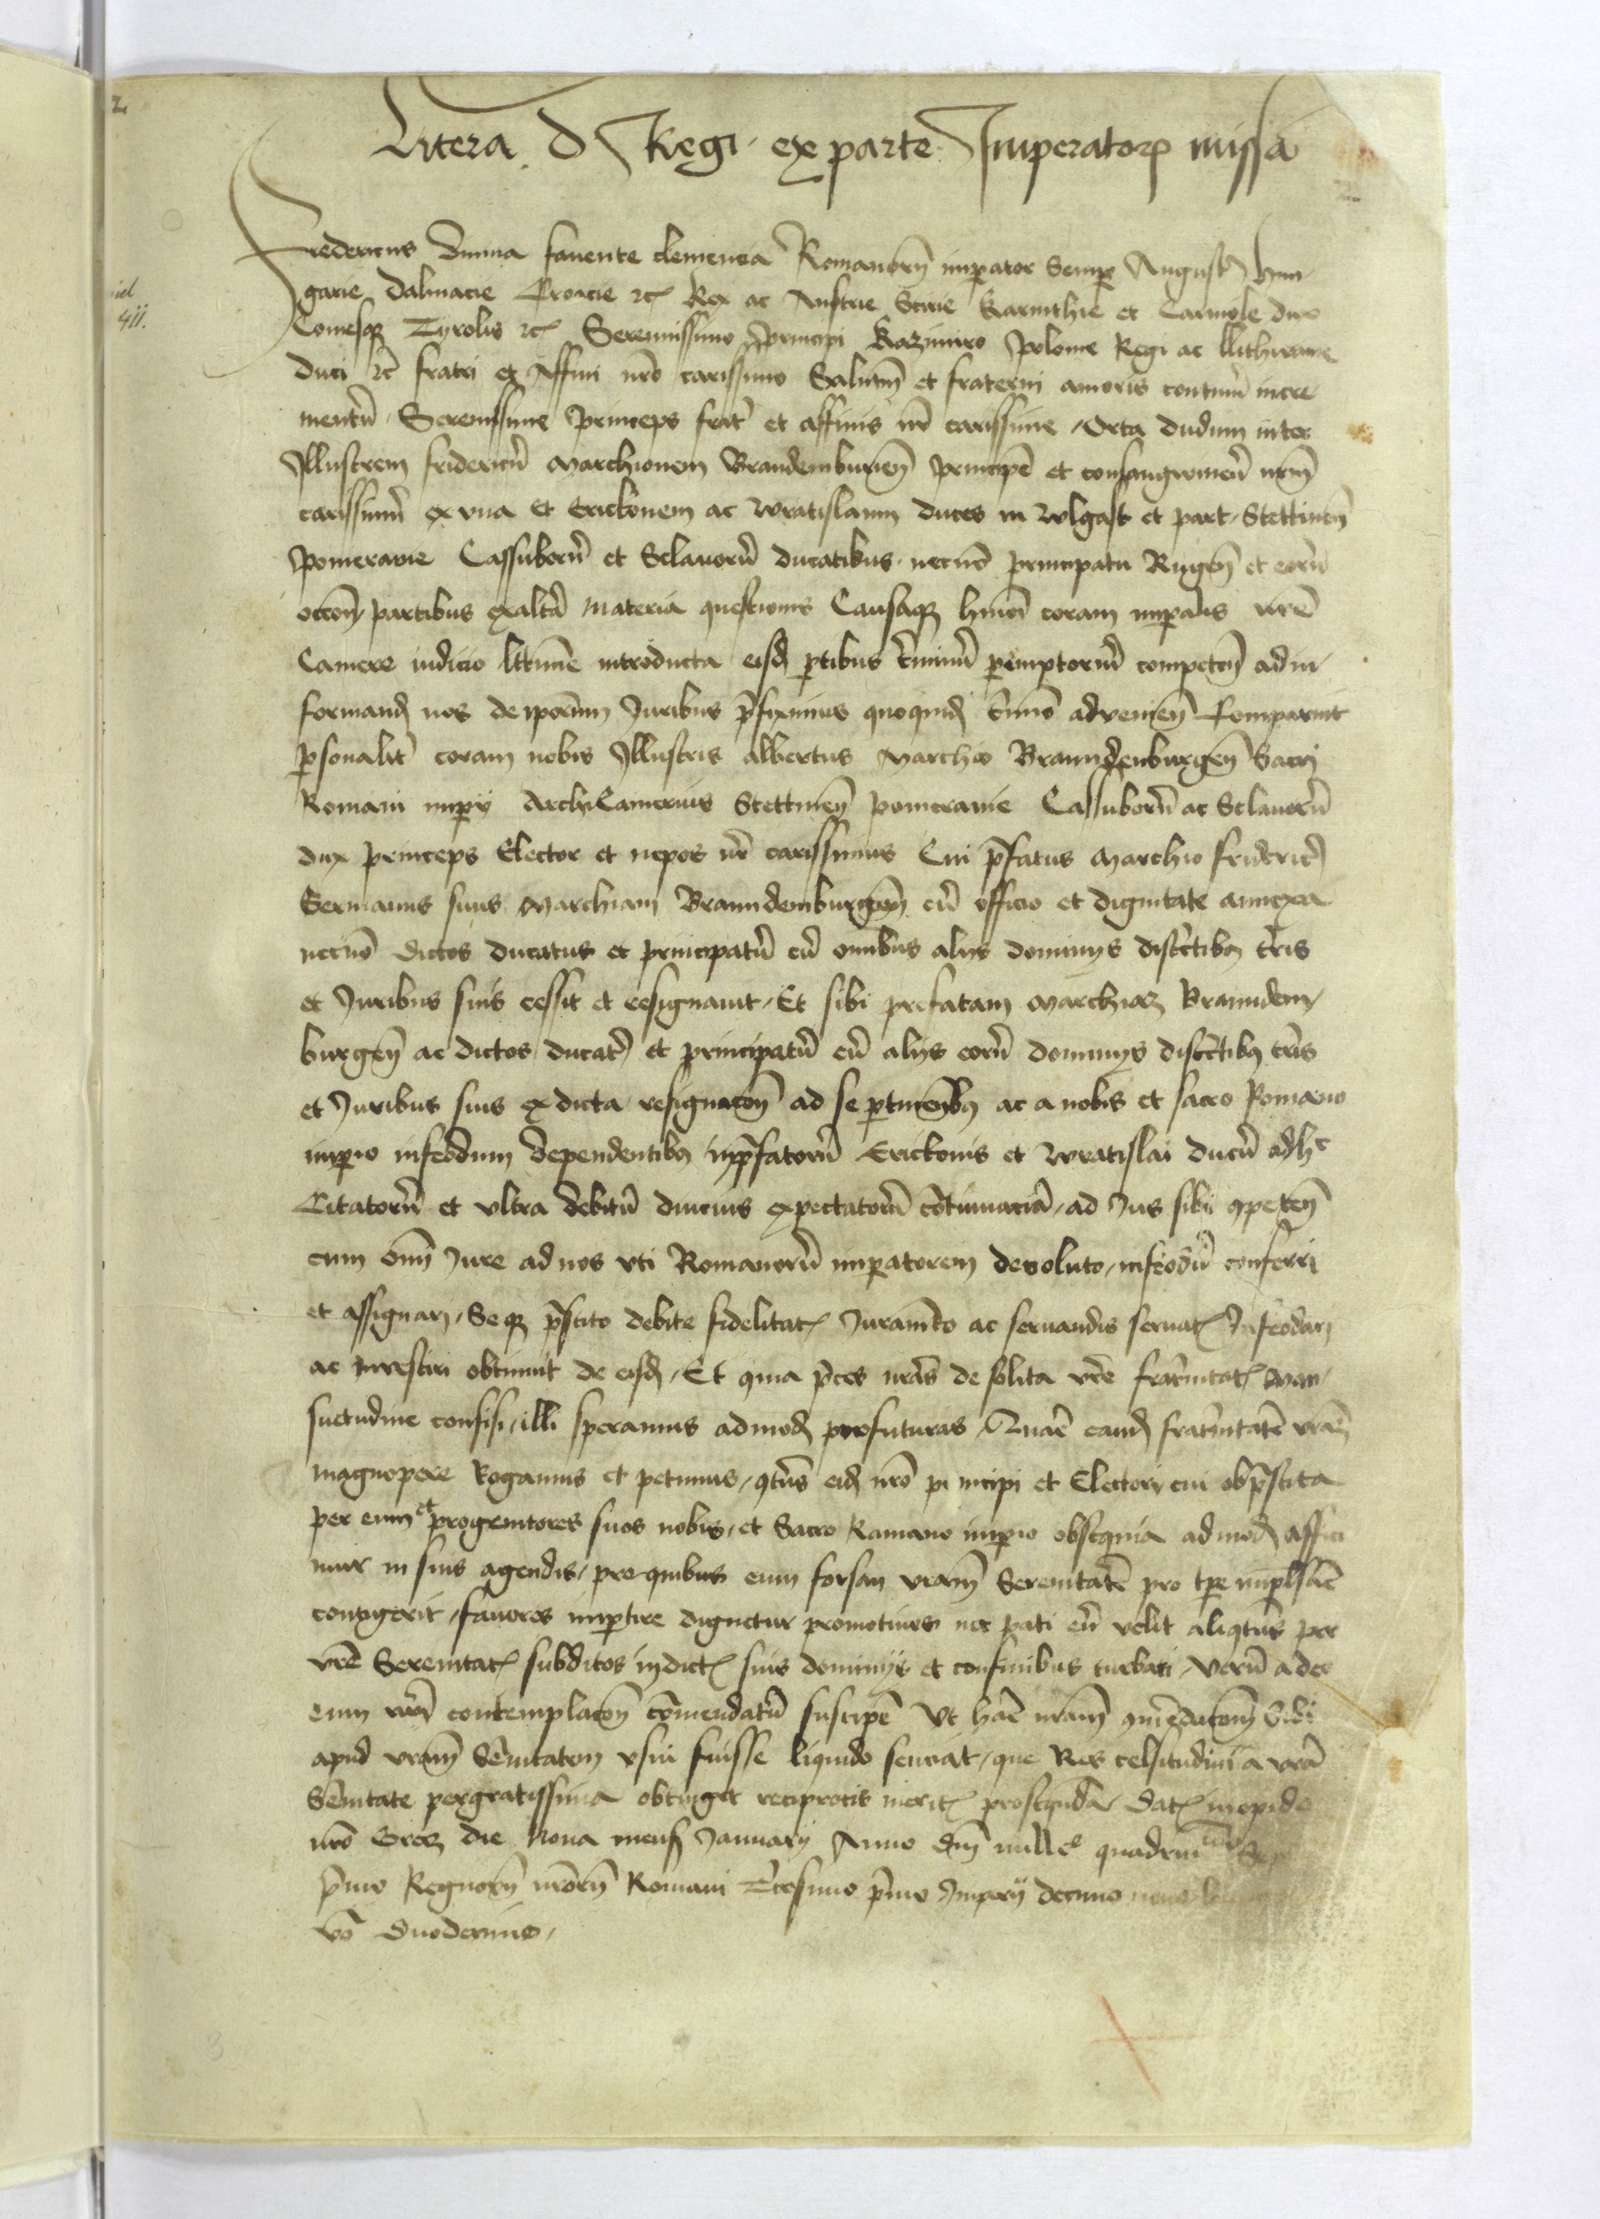 Littera d Regi ex parte Imperatoris missa
Fredericus diuina fauente clemencia Romanorum imperator Semper August9 Hun
garie Dalmacie Croacie etc Rex ac Austrie Stirie Karinthie et Carniole dux
Comesque Tyrolis etc Serenissimo principi Kazimiro Polonie Regi ac llithwanie
Duci etc fratri et Affini nro carissimo Salutem et fraterni amoris continuu incre
mentu Serenissime Princeps frater et affinis nr carissime Orta dudum inter
Illustrem fridericu Marchionem Brandemburgen Principe et consangwineu nrm
carissimu ex vna Et Erickonem ac Wratislaum duces in Wlgast et part Stettinen
Pomeranie Cassuboru et Sclauoru ducatibus necno principatu Rugen et eoru
occon partibus ex altera materia questionis Causaque hmoi coram imperialis nre
Camere iudicio lttime introducta eisd partibus terminu peremptoriu competen ad in
formand nos de ipsorum Juribus prefiximus quoquid termino advenien Comparuit
personaliter coram nobis Illustris Albertus Marchio Branndenburgen Sacri
Romani imperij ArchiCamerius Stettinen Pomeranie Cassuboru ac Sclauoru
dux princeps Elector et nepos nr carissimus Cui prefatus Marchio frideric9
Germanus suus Marchiam Branndemburgen cu officio et dignitate annexa
necno dictos ducatus et principatu cu omnibus alijs dominijs districtibus terris
et Juribus suis cessit et resignauit Et sibi prefatam Marchiam Branndem
burgen ac dictos ducat9 et principatu cu alijs eoru dominijs districtibus terris
et Juribus suis ex dicta resignacon ad se pertinentibus ac a nobis et sacro Romano
imperio infeodum dependentibus in prefatoru Erickonis et Wratislai ducu adhc
Citatoru et vltra debitu diucius expectatoru contumacia ad Jus sibi competen
cum omni Jure ad nos vti Romanoru imperatorem deuoluto infeodu conferri
et assignari Seque prestito debite fidelitatis Juramento ac seruandis seruatis Infeodari
ac inuestiri obtinuit de eisd Et quia preces nras de solita vre fraternitatis Man
suetudine confisi illi speramus admod profuturas Quare eand fraternitate vram
magnopere Rogamus et petimus quatenus eid nro principi et Electori cui ob prestita
per eum et progenitores suos nobis et Sacro Romano imperio obsequia admod affici
mur in suis agendis pro quibus eum forsan vram Serenitate pro tpe implorare
contigerit fauores impertire dignetur promotiuos nec pati eu velit aliqtus per
vre Serenitatis subditos in dictis suis dominijs et confinibus turbari Veru adeo
eum nri contemplacon commendatu suscipe Vt hac nram commendacon Sibi
apud vram Serenitatem vsui fuisse liquido senciat que Res celsitudini a vra
Serenitate pergratissima obtinget reciprocis meritis prosequenda Dat in opido
nro Grecz die Nona mens January Anno dni millo quadrin
primo Regnoru nroru Romani Tricesimo primo Imperij decimo nono
vo Duodecimo